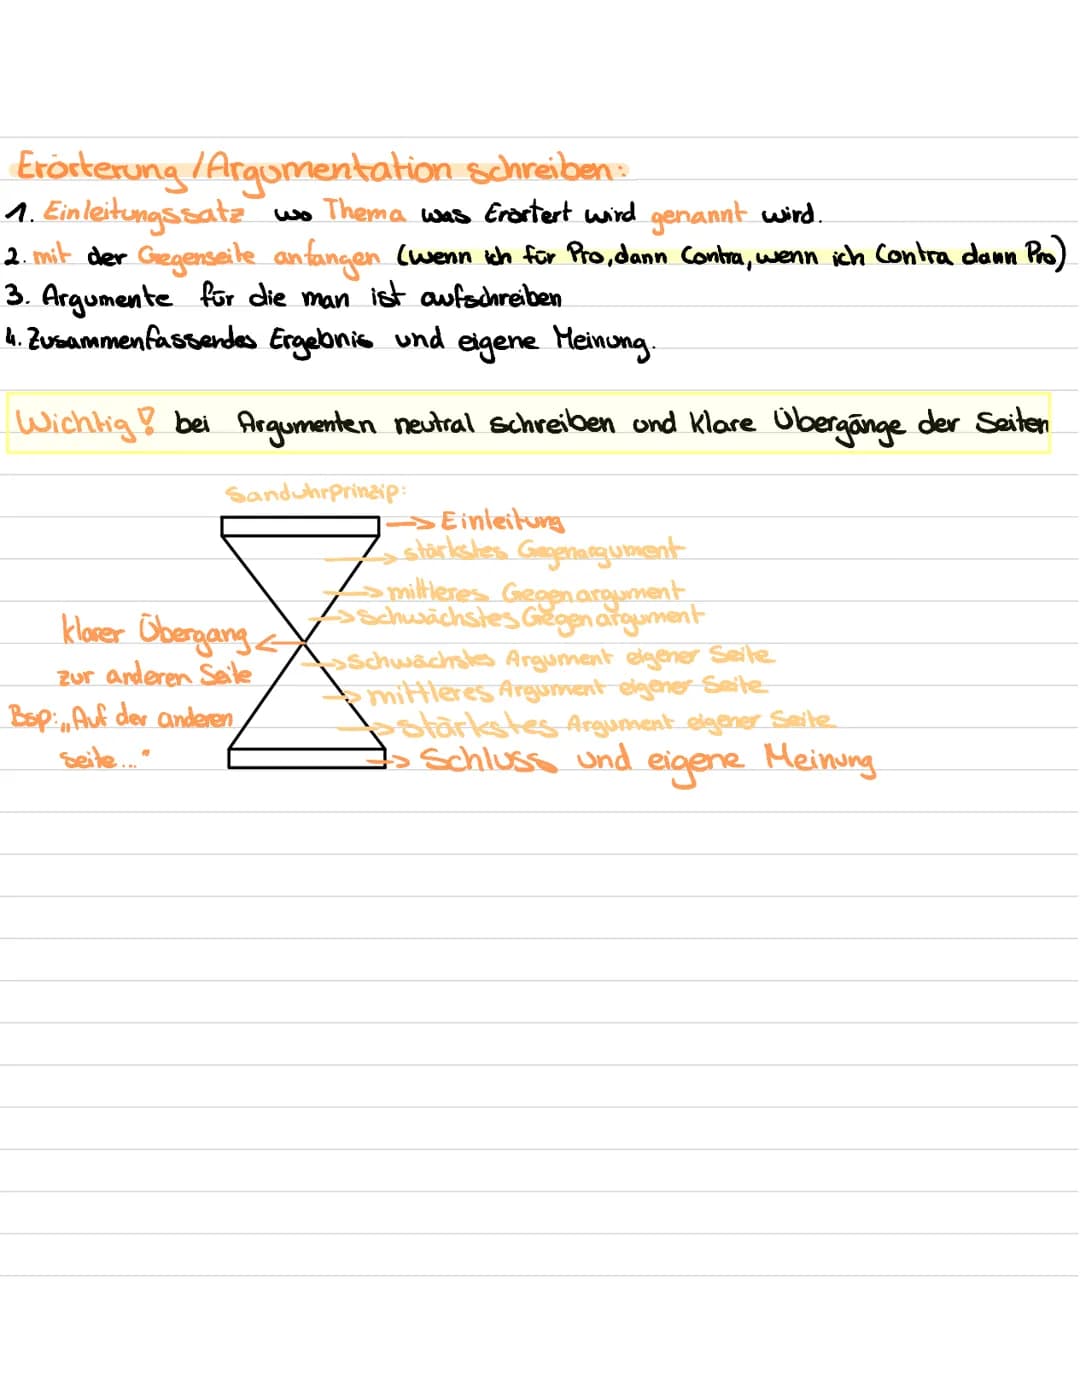 Erörterung/Argumentation schreiben:
1. Einleitungssatz wo Thema was Erörtert wird genannt wird.
2. mit der Gegenseite anfangen (wenn ich für Pro, dann Contra, wenn ich Contra dann Pro)
3. Argumente für die man ist aufschreiben
4. Zusammenfassendes Ergebnis und eigene Meinung.
Wichtig! bei Argumenten neutral schreiben und klare Übergänge der Seiten
Sanduhrprinzip:
-> Einleitung
-> stärkstes Gegenargument
-> mittleres Gegenargument
-> schwächstes Gegenargument
klarer Übergang <-
zur anderen Seite
Bsp: „Auf der anderen
Seite..."
-> schwächstes Argument eigener Seite
-> mittleres Argument eigener Seite
-> stärkstes Argument eigener Seite
-> Schluss und eigene Meinung